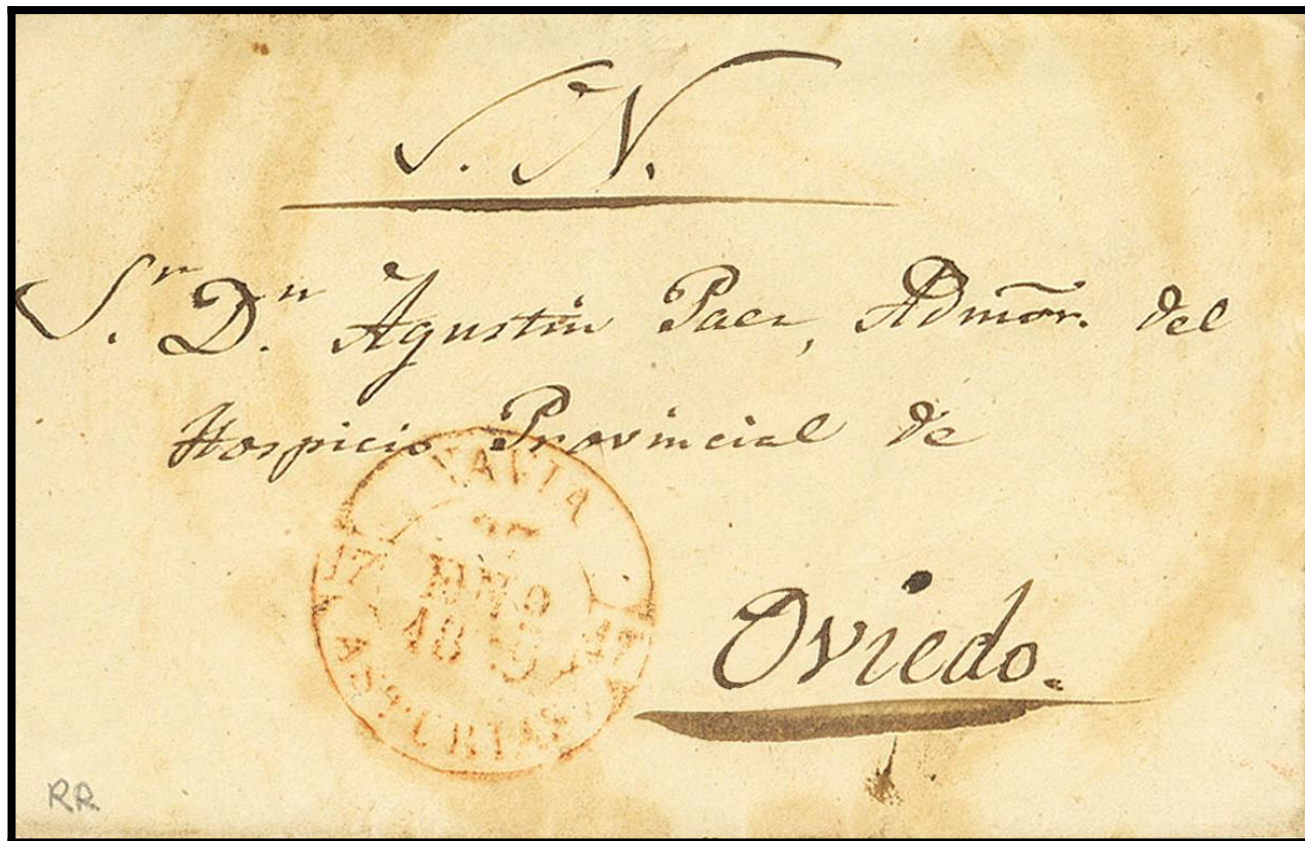 S. N.
S.r D.n Agustin Paez, Admõr. del
Hospicio Provincial de
Oviedo.
NAVIA
27
ENE
17
ASTURIAS
RR